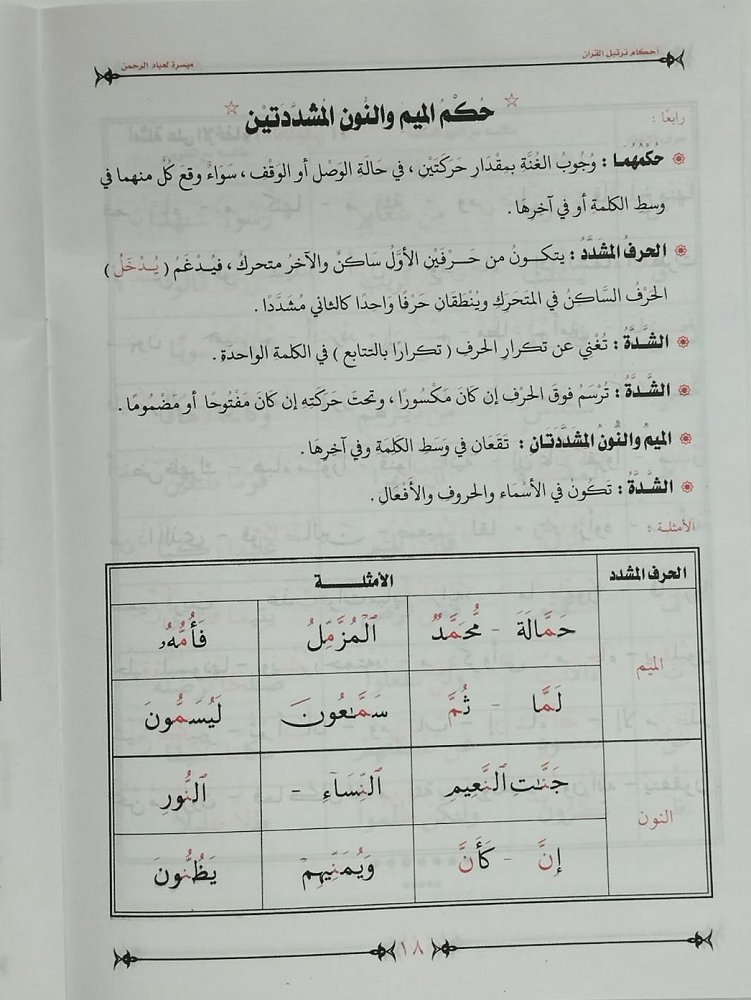 أحكام ترتيل القرآن
ميسرة لعباد الرحمن
رابعًا :
☆ حُكْمُ الميم والنُّون المُشدَّدَتيْن ☆
حُكْمُهُمَا : وُجُوبُ الغُنَّة بمِقْدَارِ حَرَكَتَيْنِ ، في حَالَةِ الوَصْل أو الوَقْف ، سَوَاءٌ وقع كُلٌّ منهما في
وسط الكلمة أو في آخِرِهَا .
الحرفُ المُشدَّدُ : يتكونُ من حَرْفَيْنِ الأوَّلُ ساكنٌ والآخرُ متحركٌ ، فيُدْغَمُ ( يُدْخَلُ )
الحَرْفُ السَّاكنُ في المتَحَرَكِ ويُنْطَقَانِ حَرْفًا واحدًا كالثاني مُشَدَّدًا .
الشَّدَّةُ : تُغْني عن تكرارِ الحرفِ ( تكرارًا بالتتابع ) في الكلمة الواحدَةِ .
الشَّدَّةُ : تُرْسَمُ فوقَ الحَرْف إن كانَ مَكْسُورًا ، وتحتَ حَرَكتِهِ إن كَانَ مَفْتُوحًا أو مَضْمُومًا .
الميمُ والنُّونُ المُشدَّدَتَانِ : تَقَعَان في وَسَط الكلمة وفي آخِرِهَا .
الشَّدَّةُ : تَكُونُ في الأسْمَاء والحروفِ والأفْعَالِ .
الأمثلة :
الحرف المشدد الأمثلــة
الميم
حَمَّالَةَ - مُّحَمَّدٌ الْمُزَّمِّلُ فَأُمُّهُۥ
لَمَّا - ثُمَّ سَمَّٰعُونَ لَيُسَمُّونَ
النون
جَنَّٰتِ النَّعِيمِ النِّسَآءِ - النُّورِ
إِنَّ - كَأَنَّ وَيُمَنِّيهِمْ يَظُنُّونَ
١٨